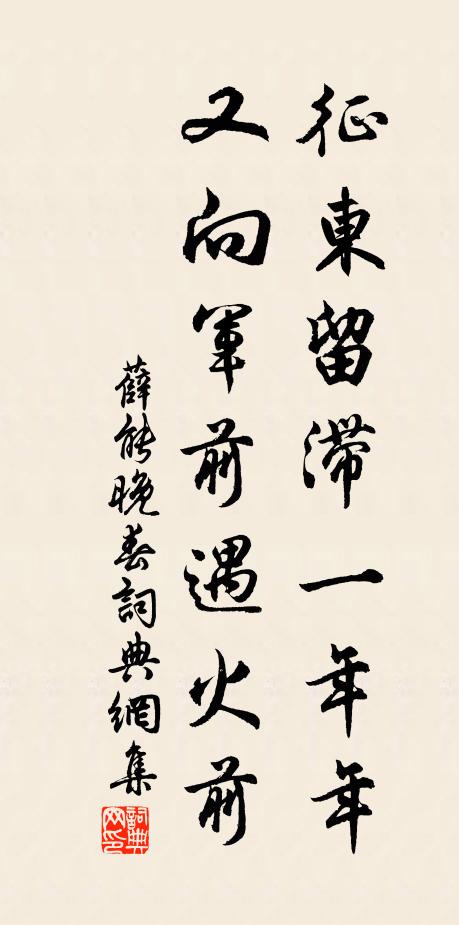 征東留滯一年年
又向軍前遇火前
薛能晚春詞典網集
詞典網印